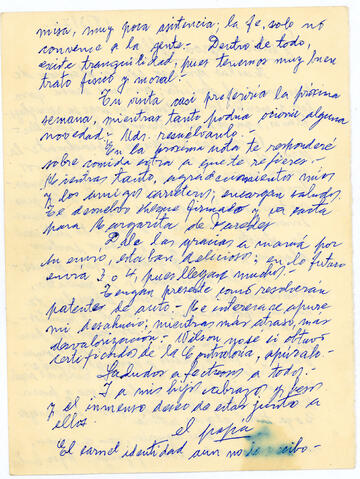 misa, muy poca asistencia; la fe, solo no
convence a la gente.- Dentro de todo,
existe tranquilidad, pues tenemos muy buen
trato físico y moral.-
Tu visita casi preferiria la próxima
semana, mientras tanto podria ocurrir alguna
novedad.- Uds. resuélvanlo.-
En la proxima nota te responderé
sobre comida extra a que te refieres.-
Mientras tanto, agradecimientos mios
a los amigos carreteros; encargan saludos.
Te devuelvo cheque firmado y va carta
para Margarita de Paredes
Dale las gracias a mamá por
su envio, estaban delicioso; en lo futuro
envia 3 o 4, pues llegaron muchos.-
Tengan presente como resolveran
patentes de auto.- Me interesa se apure
mi desahucio; mientras mas atraso, mas
desvalorización.- Wilson no se si obtuvo
certificados de la Contraloria, apúralo.-
Saludos afectuosos a todos.-
Y a mis hijos abrazos y besos
y el inmenso deseo de estar junto a
ellos.
el papa
El carnet identidad aun no lo recibo.-